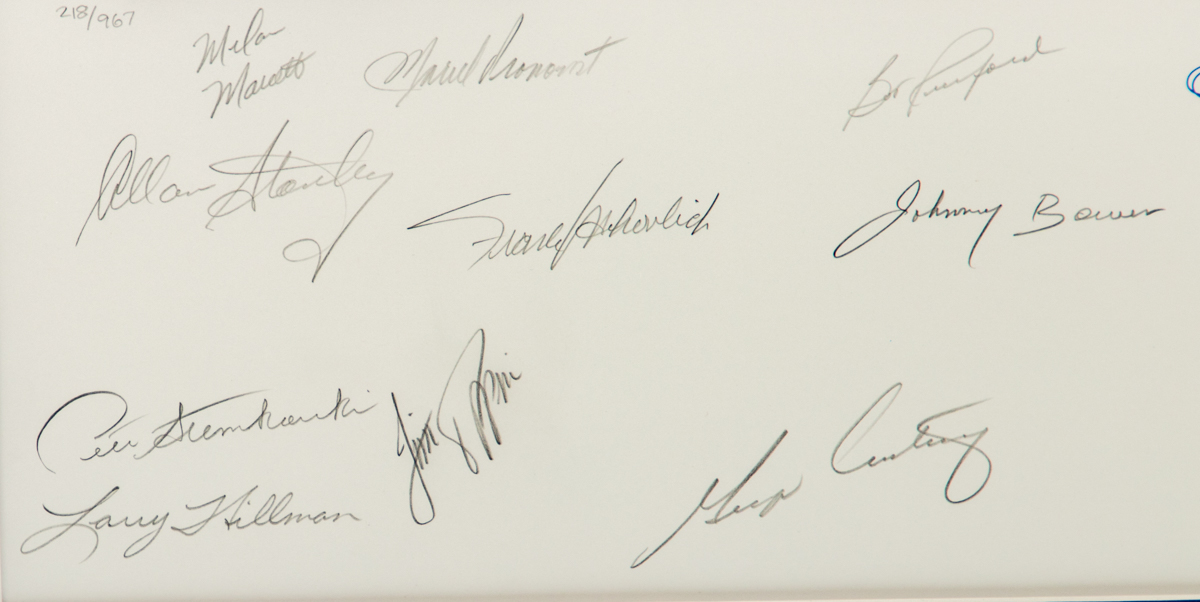 218/967
Milan
Marcetta
Marcel Pronovost
Bob Pulford
Allan Stanley
Frank Mahovlich
Johnny Bower
Peter Stemkowski
Jim Pappin
Larry Hillman
George Armstrong